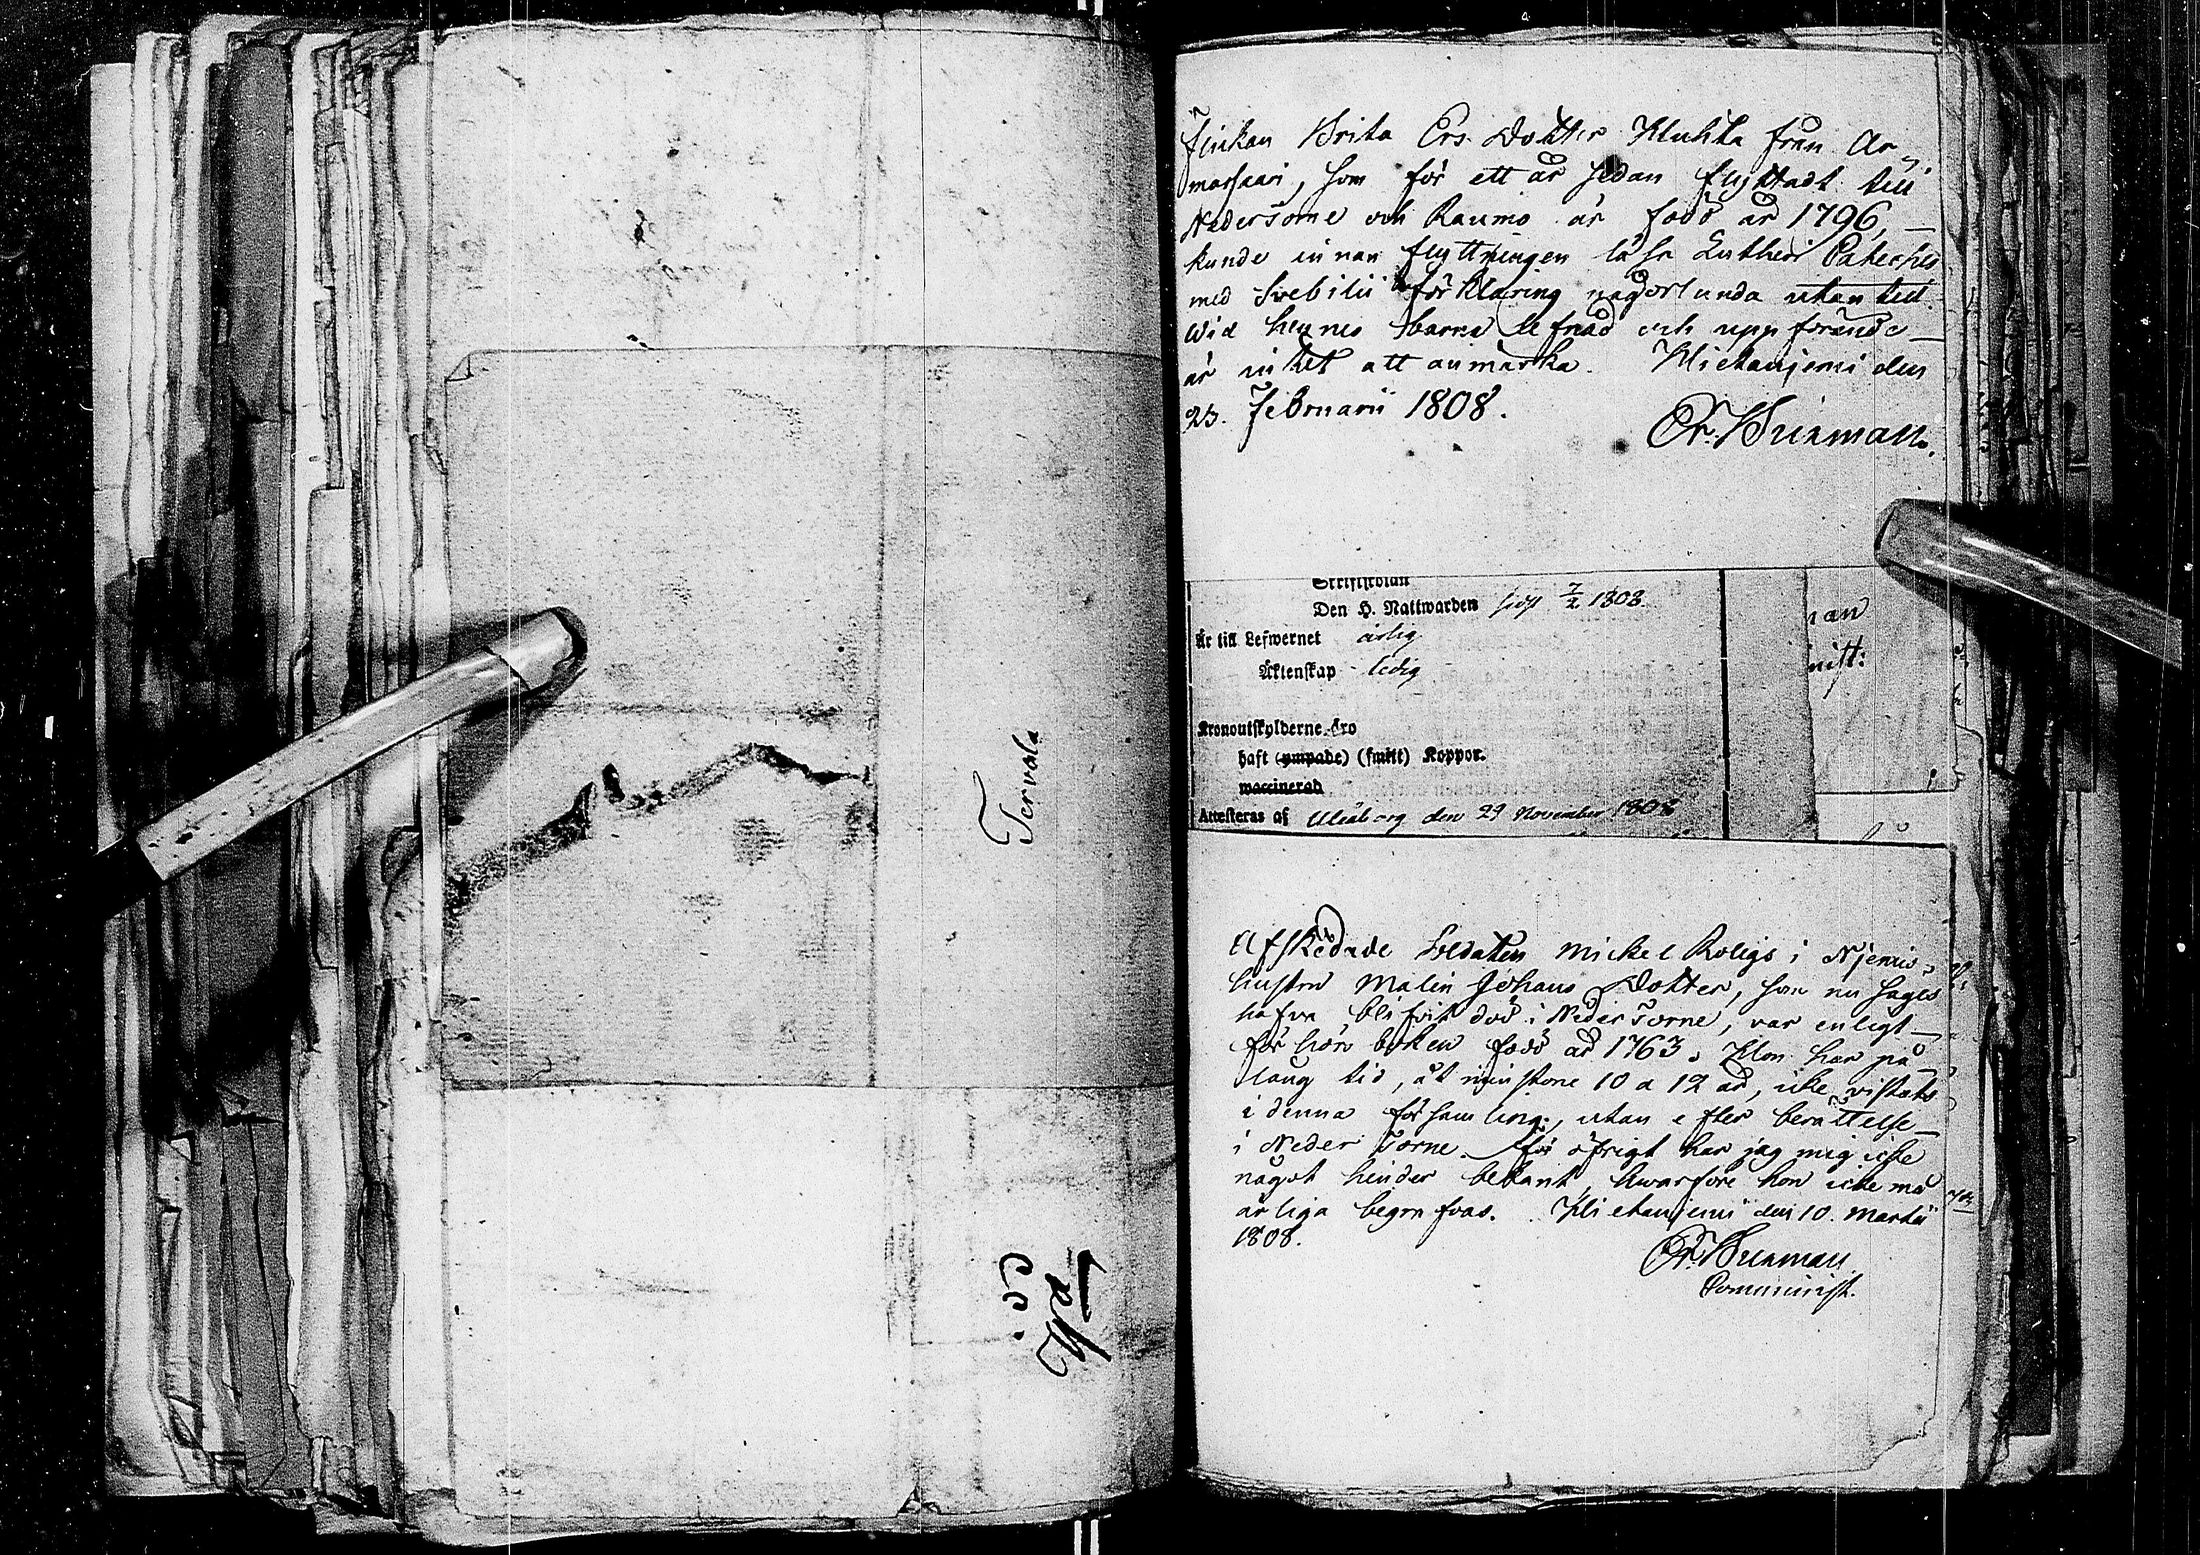 Tervola
Flickan Brita Ers. Dotter Huhta från Ar-
massaari, som för ett år sedan flyttadt till
Neder Torne och Raumo är född år 1796,
kunde innan flyttningen läsa Lutheri Cateches
med Svebilii förklaring någorlunda utan till.
Wid hennes barna lefnad och uppförande
är intet att anmärka. Hietaniemi den
23. Februarii 1808.
Er. Brunman.
Skriftskolan
Den H. Nattwarden sidst 7/2 1808.
Är till Lefwernet ärlig
Äktenskap ledig
Kronoutskylderne äro
haft (ympade) (smitt) Koppor.
waccinerad
Attesteras af Uleåborg den 29 November 1808
nan
nist:
Afskedade Soldaten Mickel Roligs i Njemis
hustru Malin Johans Dotter, som nu säges
hafva blifvit död i Neder Torne, var enligt
förhörs boken född år 1763. Hon har på
lång tid, åt minstone 10 a 12 år, icke vistats
i denna församling, utan efter berättelse
i Neder Torne. För öfrigt har jag mig icke
något hinder bekant, hwarföre hon icke må
ärliga begrafvas. Hietaniemi den 10. Martii
1808.
Er. Brunman
Comminist.